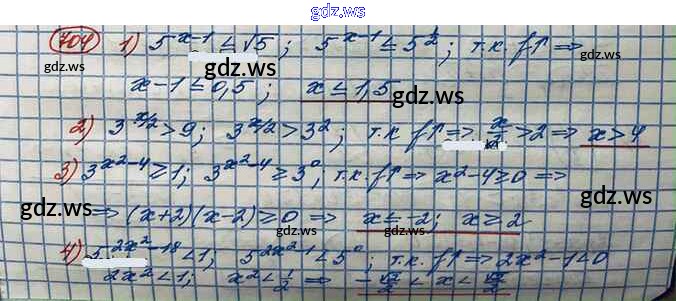 gdz.ws
704 1) 5^(x-1) ≤ √5; 5^(x-1) ≤ 5^(1/2); т.к. f↑ ⇒
gdz.ws gdz.ws
x-1 ≤ 0,5; x ≤ 1,5
gdz.ws
2) 3^(x/2) > 9; 3^(x/2) > 3^2; т.к. f↑ ⇒ x/2 > 2 ⇒ x > 4
3) 3^(x²-4) ≥ 1; 3^(x²-4) ≥ 3^0; т.к. f↑ ⇒ x²-4 ≥ 0 ⇒
gdz.ws gdz.ws
⇒ (x+2)(x-2) ≥ 0 ⇒ x ≤ -2; x ≥ 2
gdz.ws
4) 5^(2x²-18) < 1; 5^(2x²-1) < 5^0; т.к. f↑ ⇒ 2x²-1 < 0
2x² < 1; x² < 1/2 ⇒ -√2/2 < x < √2/2
gdz.ws gdz.ws